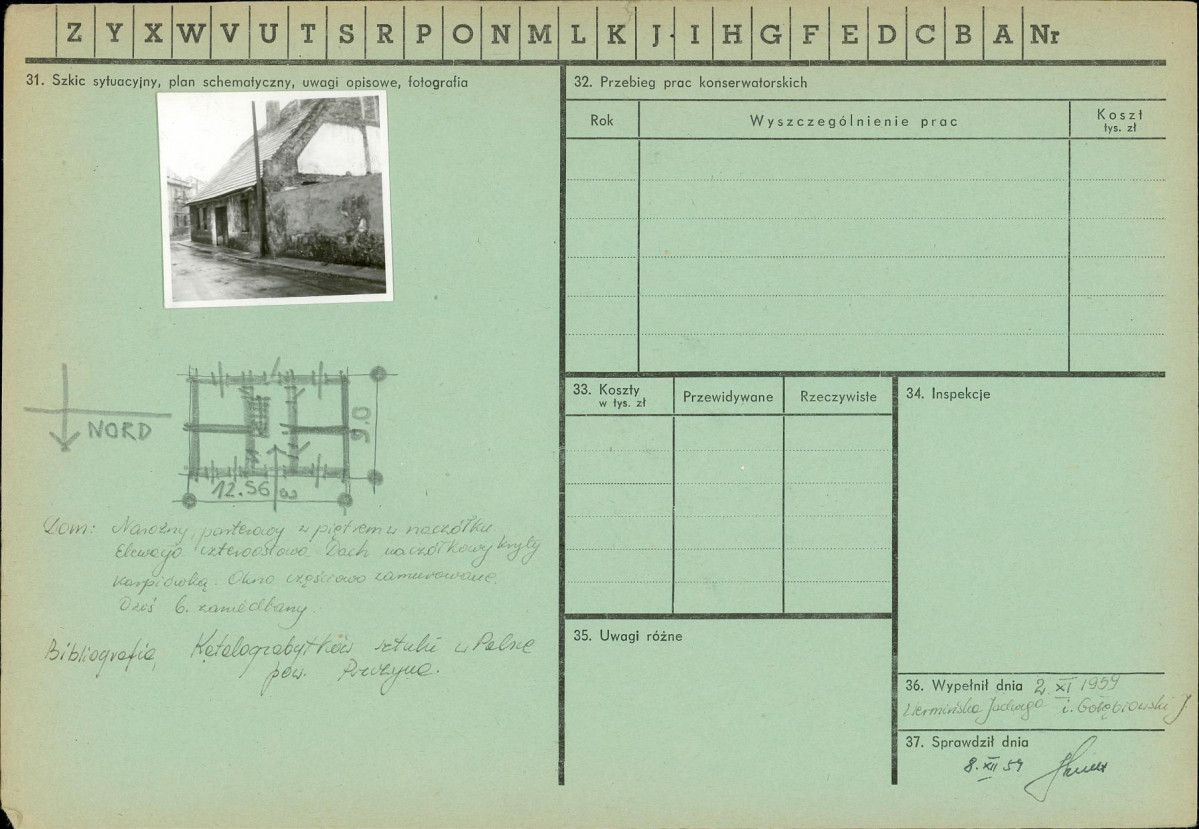 Z Y X W V U T S R P O N M L K J I H G F E D C B A Nr
31. Szkic sytuacyjny, plan schematyczny, uwagi opisowe, fotografia
NORD
9.0
12.56
Dom: Narożny, parterowy z piętrem w naczółku
Elewacja czteroosiowa. Dach naczółkowy kryty
karpiówką. Okno częściowo zamurowane.
Dziś b. zaniedbany.
Bibliografia, Katalog zabytków sztuki w Polsce
pow.
32. Przebieg prac konserwatorskich
Rok
Wyszczególnienie prac
Koszt
tys. zł
33. Koszty
w tys. zł
Przewidywane
Rzeczywiste
34. Inspekcje
35. Uwagi różne
36. Wypełnił dnia 2 XI 1959
Jadwiga i. Gołębiowski J
37. Sprawdził dnia
8. XII 59